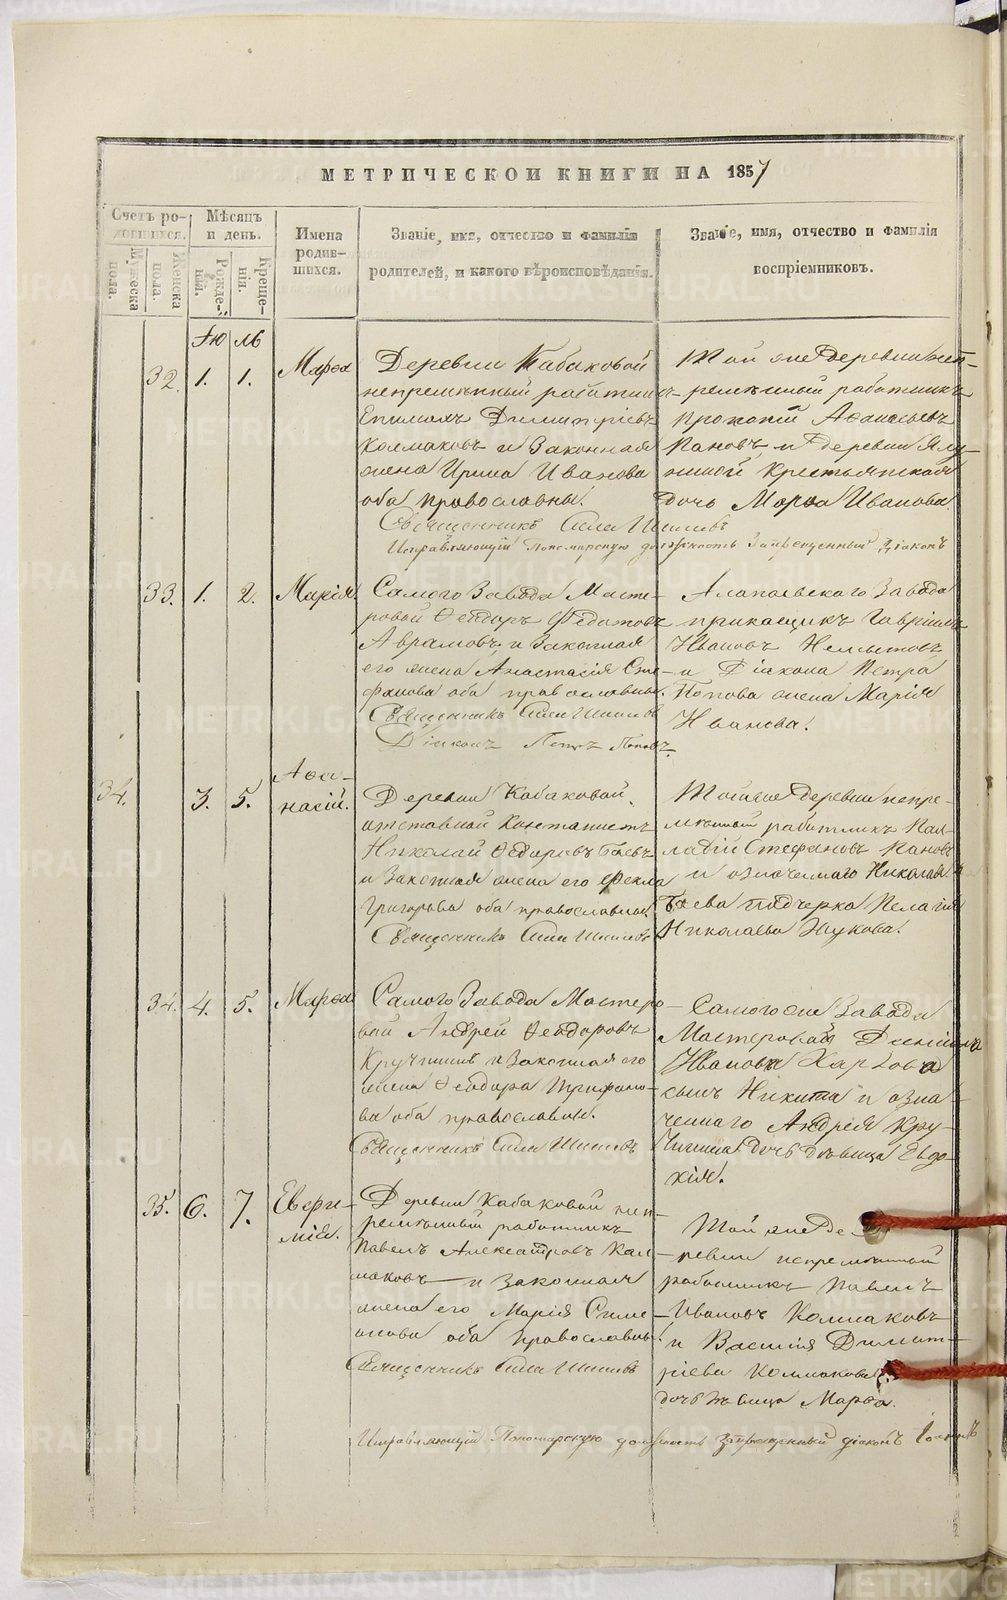 МЕТРИЧЕСКОЙ КНИГИ НА 1857
Счетъ ро-
дившихся.
Мѣсяцъ
и день.
Имена
родив-
шихся.
Званіе, имя, отчество и фамилія
родителей, и какого вѣроисповѣданія.
Званіе, имя, отчество и фамилія
воспріемниковъ.
Мужеска
пола.
Женска
пола.
Рожде-
нія.
Креще-
нія.
Июль
32. 1. 1. Марѳа
Деревни Кабаковой
непремѣнный работникъ
Димитріевъ
Колмаковъ и Законная
жена Ирина Иванова
оба православны.
Священникъ Сила
Исправляющій Пономарскую должность Запрещенный Діаконъ
Той же Деревни неп-
ремѣнный работникъ
Прокопій Аѳанасьевъ
Пановъ и Деревни Ялу-
ниной Крестьянская
дочь Марѳа Иванова
33. 1. 2. Марія.
Самого Завода Масте-
ровой Ѳеодоръ Федотовъ
Аврамовъ и Законная
его жена Анастасія Сте-
фанова оба православны.
Священникъ Сила
Діаконъ Петръ Поповъ.
Алапаевского Завода
прикащикъ Гавріилъ
Ивановъ
и Діакона Петра
Попова жена Марія
Иванова.
34. 3. 5. Аѳа-
насій.
Деревни Кабаковой,
отставной
Николай Ѳедоровъ Боевъ
и Законная жена его Фекла
Григорьева оба православны.
Священникъ Сила
Тойже Деревни непре-
мѣнный работникъ Пал-
ладій Стефановъ Пановъ
и означеннаго Николая
Боева Пелагія
Николаева Жукова.
34. 4. 5. Марѳа
Самого Завода Мастеро-
вой Андрей Ѳеодоровъ
Кручининъ и Законная его
жена Ѳеодора Трифоно-
ва оба православны.
Священникъ Сила
Самогоже Завода
Мастероваго
Иванова Харлова
сынъ Никита и озна-
ченнаго Андрея Кру-
чинина дочь дѣвица Евдо-
кія.
35. 6. 7. Евѳи-
мія.
Деревни Кабаковой неп-
ремѣнный работникъ
Павелъ Александровъ Кол-
маковъ и Законная
жена его Марія Симе-
онова оба православны.
Священникъ Сила
Той же Де-
ревни непремѣнный
работникъ Павелъ
Ивановъ Колмаковъ
и Василія Димит-
ріева Колмакова
дочь дѣвица Марѳа.
Исправляющій Пономарскую должность запрещенный діаконъ
METRIKI.GASO-URAL.RU